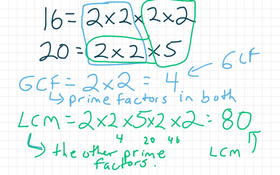 16 = 2×2×2×2
20 = 2×2×5
GCF = 2×2 = 4 GCF
prime factors in both
LCM = 2×2×5×2×2 = 80
4 20 40
the other prime factors. LCM